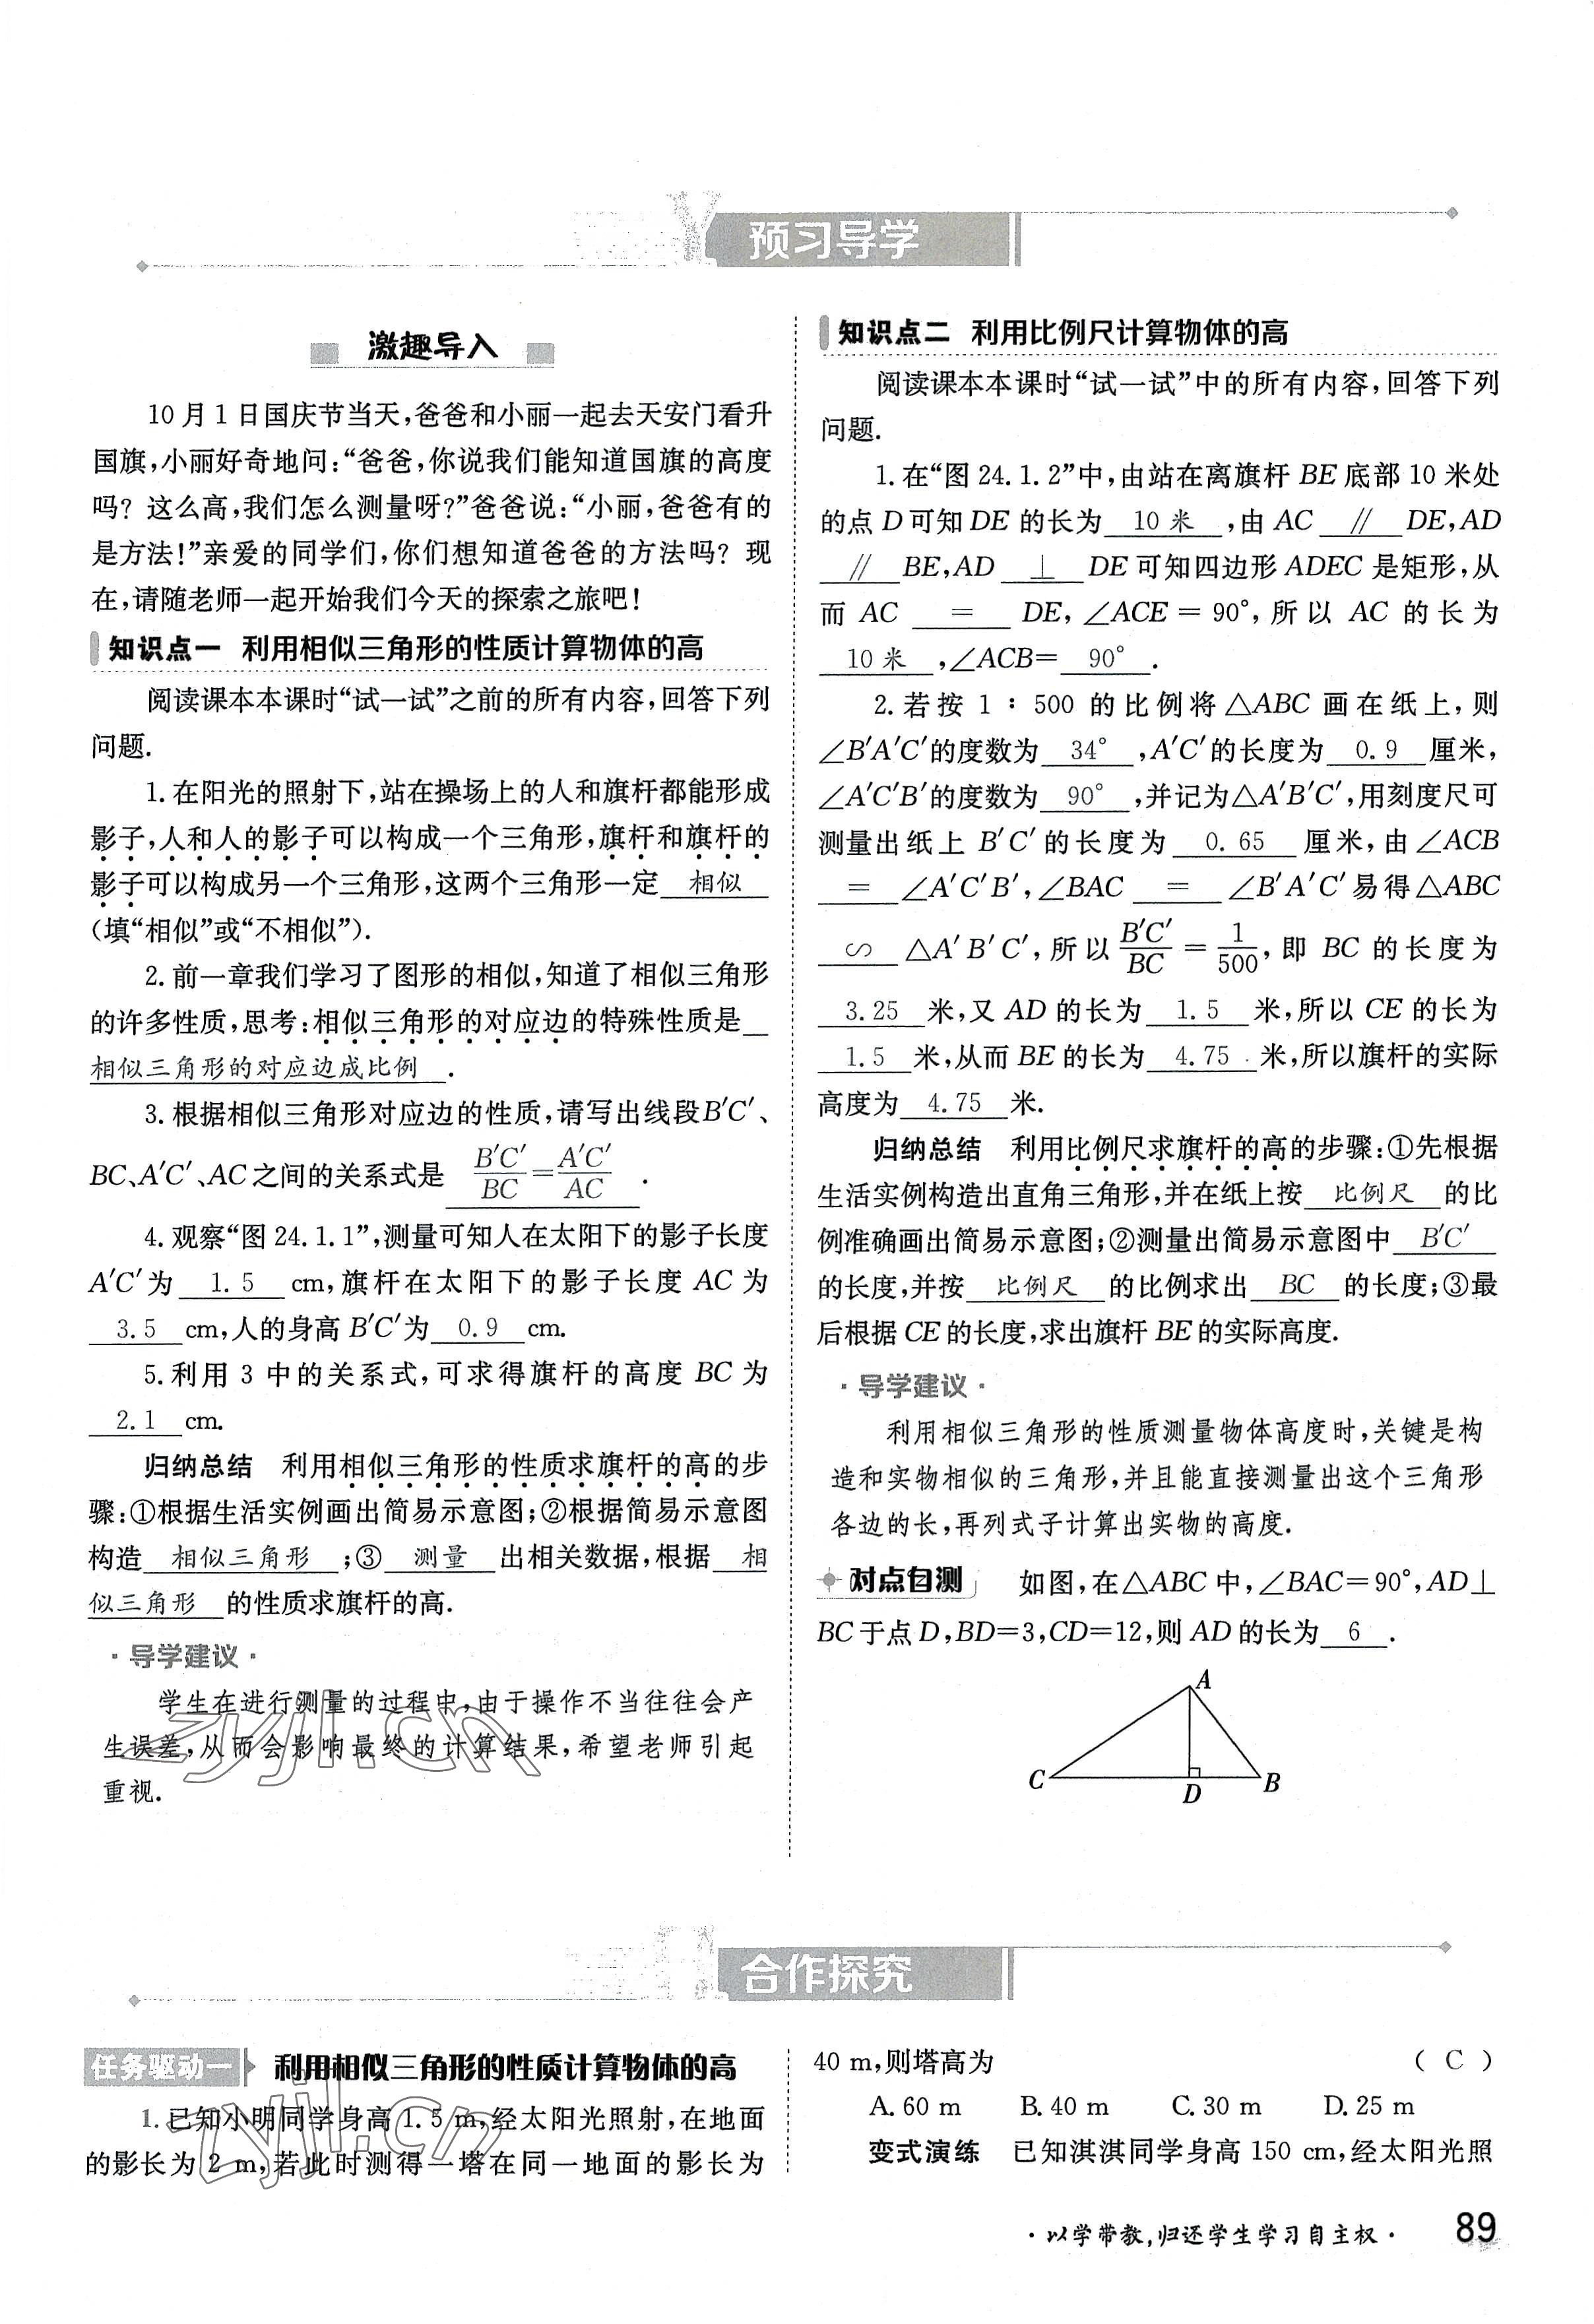 预习导学
激趣导入
10月1日国庆节当天,爸爸和小丽一起去天安门看升
国旗,小丽好奇地问:“爸爸,你说我们能知道国旗的高度
吗?这么高,我们怎么测量呀?”爸爸说:“小丽,爸爸有的
是方法!”亲爱的同学们,你们想知道爸爸的方法吗?现
在,请随老师一起开始我们今天的探索之旅吧!
知识点一 利用相似三角形的性质计算物体的高
阅读课本本课时“试一试”之前的所有内容,回答下列
问题.
1.在阳光的照射下,站在操场上的人和旗杆都能形成
影子,人和人的影子可以构成一个三角形,旗杆和旗杆的
影子可以构成另一个三角形,这两个三角形一定 相似
(填“相似”或“不相似”).
2.前一章我们学习了图形的相似,知道了相似三角形
的许多性质,思考:相似三角形的对应边的特殊性质是
相似三角形的对应边成比例 .
3.根据相似三角形对应边的性质,请写出线段B′C′、
BC、A′C′、AC之间的关系式是 B′C′/BC=A′C′/AC .
4.观察“图24.1.1”,测量可知人在太阳下的影子长度
A′C′为 1.5 cm,旗杆在太阳下的影子长度AC为
3.5 cm,人的身高B′C′为 0.9 cm.
5.利用3中的关系式,可求得旗杆的高度BC为
2.1 cm.
归纳总结 利用相似三角形的性质求旗杆的高的步
骤:①根据生活实例画出简易示意图;②根据简易示意图
构造 相似三角形 ;③ 测量 出相关数据,根据 相
似三角形 的性质求旗杆的高.
·导学建议·
学生在进行测量的过程中,由于操作不当往往会产
生误差,从而会影响最终的计算结果,希望老师引起
重视.
知识点二 利用比例尺计算物体的高
阅读课本本课时“试一试”中的所有内容,回答下列
问题.
1.在“图24.1.2”中,由站在离旗杆BE底部10米处
的点D可知DE的长为 10米 ,由AC ∥ DE,AD
∥ BE,AD ⊥ DE可知四边形ADEC是矩形,从
而AC = DE,∠ACE=90°,所以AC的长为
10米 ,∠ACB= 90° .
2.若按1∶500的比例将△ABC画在纸上,则
∠B′A′C′的度数为 34° ,A′C′的长度为 0.9 厘米,
∠A′C′B′的度数为 90° ,并记为△A′B′C′,用刻度尺可
测量出纸上B′C′的长度为 0.65 厘米,由∠ACB
= ∠A′C′B′,∠BAC = ∠B′A′C′易得△ABC
∽ △A′B′C′,所以B′C′/BC=1/500,即BC的长度为
3.25 米,又AD的长为 1.5 米,所以CE的长为
1.5 米,从而BE的长为 4.75 米,所以旗杆的实际
高度为 4.75 米.
归纳总结 利用比例尺求旗杆的高的步骤:①先根据
生活实例构造出直角三角形,并在纸上按 比例尺 的比
例准确画出简易示意图;②测量出简易示意图中 B′C′
的长度,并按 比例尺 的比例求出 BC 的长度;③最
后根据CE的长度,求出旗杆BE的实际高度.
·导学建议·
利用相似三角形的性质测量物体高度时,关键是构
造和实物相似的三角形,并且能直接测量出这个三角形
各边的长,再列式子计算出实物的高度.
对点自测 如图,在△ABC中,∠BAC=90°,AD⊥
BC于点D,BD=3,CD=12,则AD的长为 6 .
A
C
D
B
合作探究
任务驱动一 利用相似三角形的性质计算物体的高
1.已知小明同学身高1.5 m,经太阳光照射,在地面
的影长为2 m,若此时测得一塔在同一地面的影长为
40 m,则塔高为 ( C )
A.60 m B.40 m C.30 m D.25 m
变式演练 已知淇淇同学身高150 cm,经太阳光照
·以学带教,归还学生学习自主权·
89
zyjl.cn
zyjl.cn